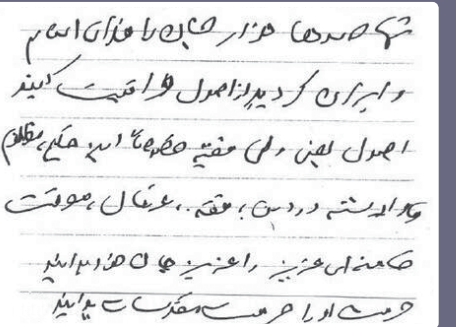 شما صدها هزار جان را فدای امام
و ایران کردید از اصول مراقبت کنید
اصول یعنی ولی فقیه خصوصاً این حکیم مظلوم
وارسته در دین، فقه، عرفان، معرفت
خامنه‌ای عزیز را عزیز جان خود بدانید
حرمت او را حرمت مقدسات بدانید